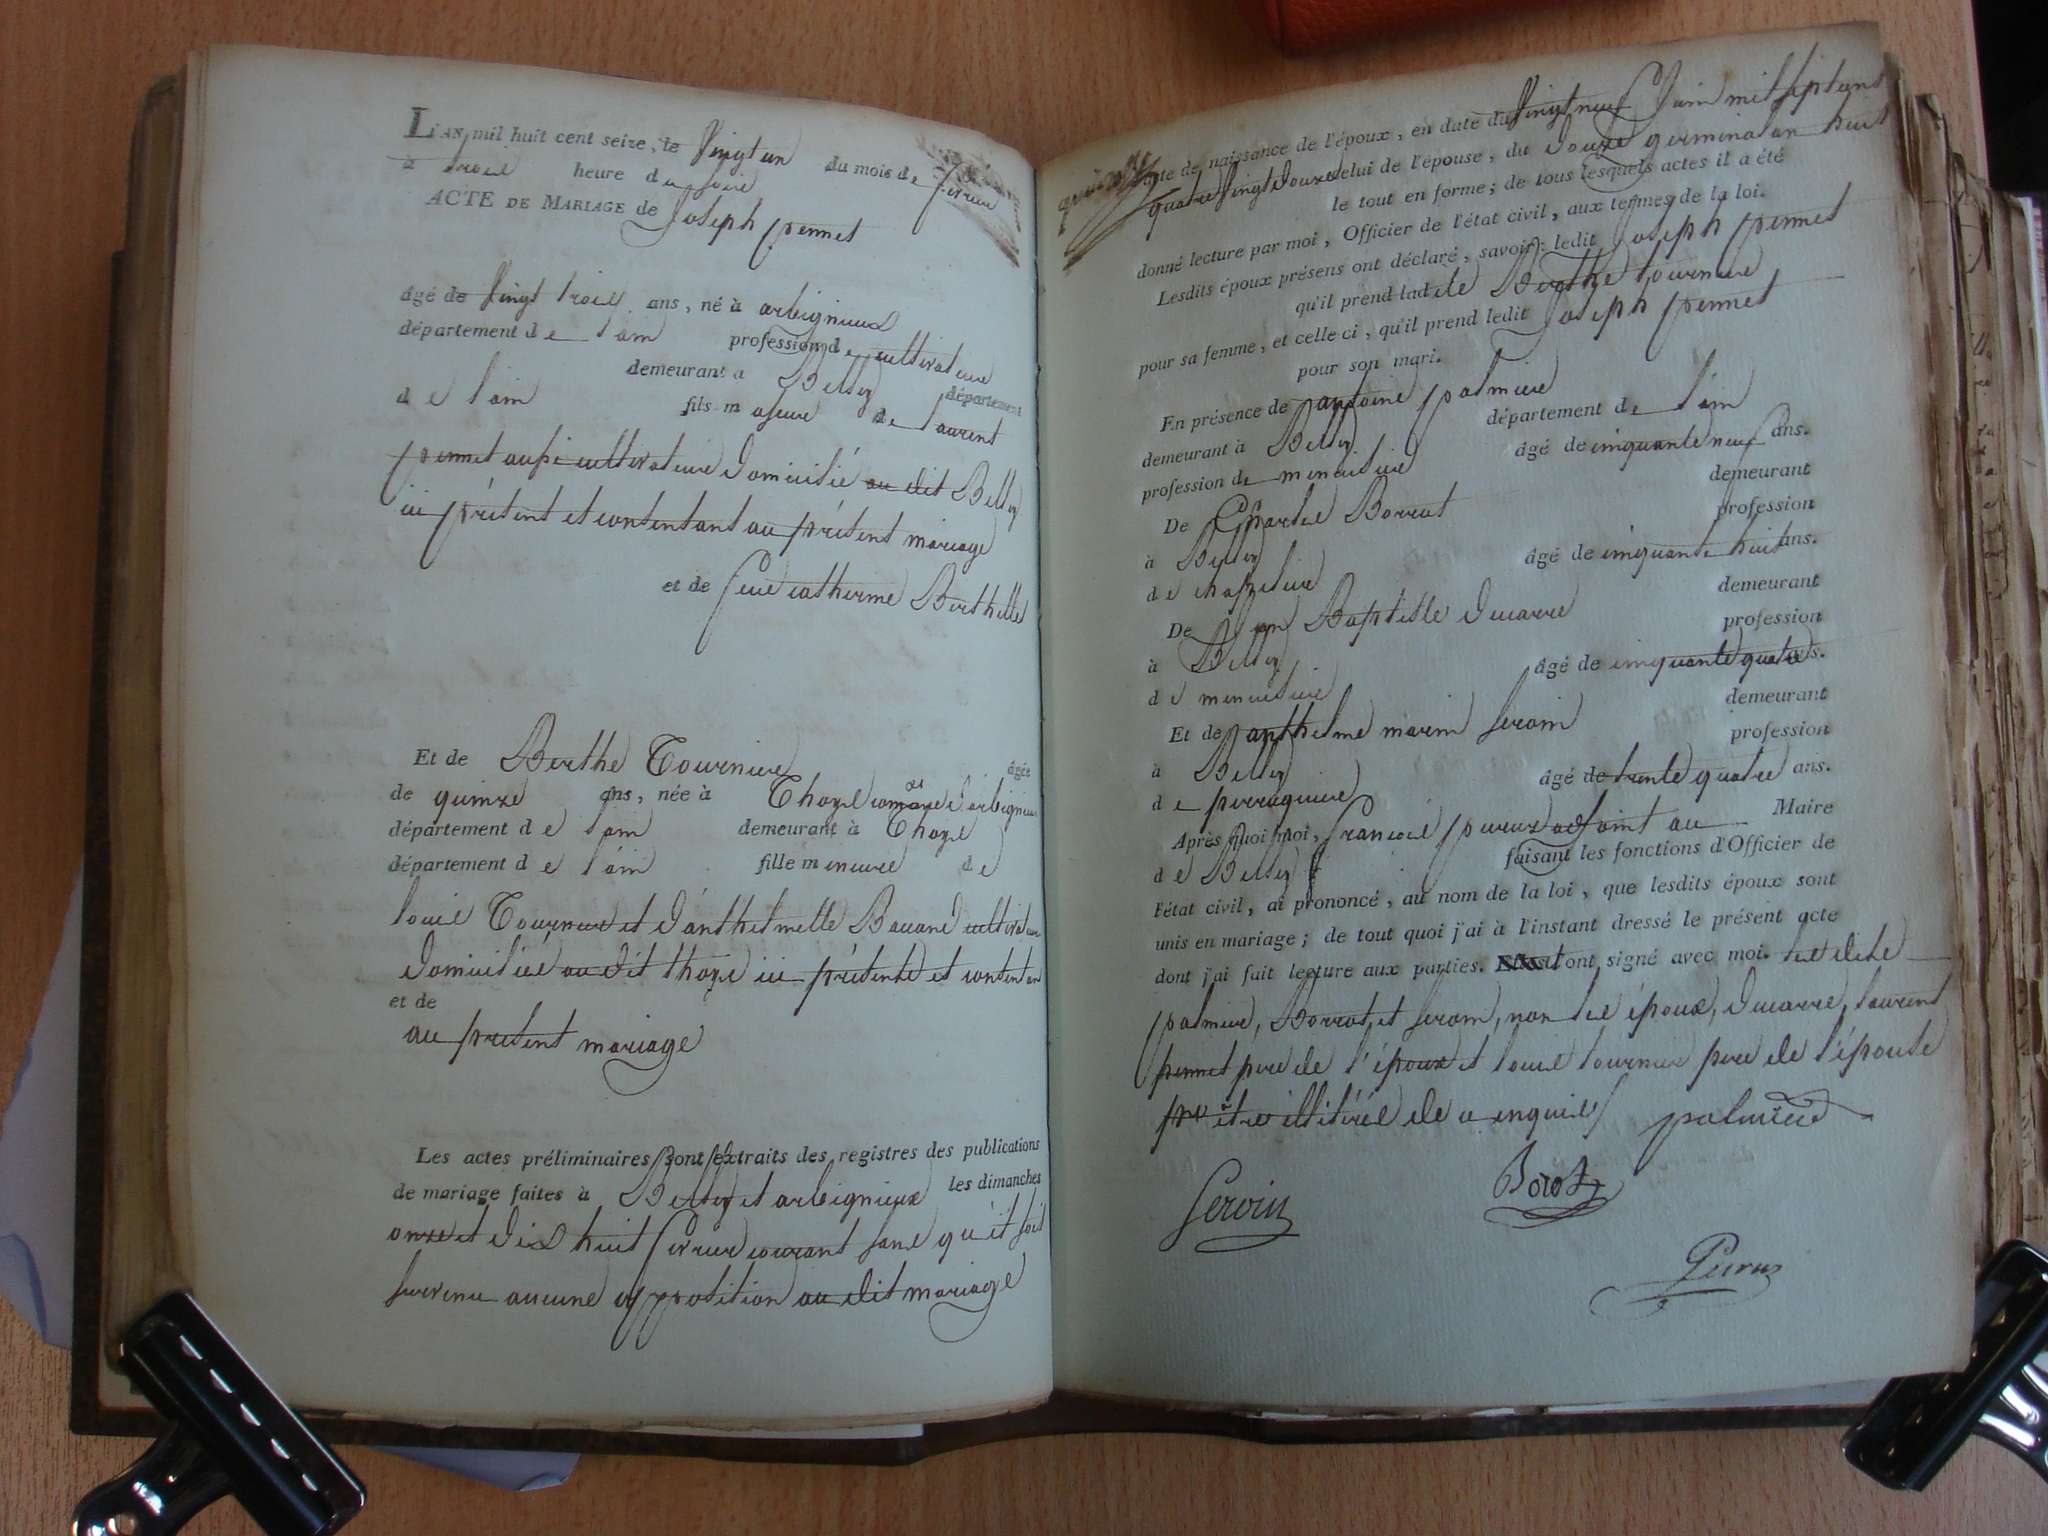 L'AN mil huit cent seize, le vingt un du mois de fevrier
à trois heure du soir
ACTE DE MARIAGE de Joseph pennet
âgé de vingt trois ans, né à arbignieux
département de l'ain profession de cultivateur
demeurant à Belley département
de l'ain fils majeur de laurent
pennet aussi cultivateur domicilié au dit Belley
ici présent et consentant au présent mariage
et de feue catherine Berthellet
Et de Berthe Tournier âgée
de quinze ans, née à Thoys comune d'arbignieux
département de l'ain demeurant à Thoys
département de l'ain fille mineure de
louis Tournier et d'anthelmette Bavand cultivateurs
domiciliés au dit thoys ici présents et consentan
et de
au présent mariage
Les actes préliminaires sont extraits des registres des publications
de mariage faites à Belley et arbignieux les dimanches
onze et dix huit fevrier courant sans qu'il soit
survenu aucune opposition au dit mariage
acte de naissance de l'époux, en date du vingt neuf Juin mil sept cent
quatre vingt douze celui de l'épouse, du douze germinal an huit
le tout en forme; de tous lesquels actes il a été
donné lecture par moi, Officier de l'état civil, aux termes de la loi.
Lesdits époux présens ont déclaré, savoir: ledit Joseph pennet
qu'il prend ladite Berthe tournier
pour sa femme, et celle ci, qu'il prend ledit Joseph pennet
pour son mari.
En présence de antoine palmier
demeurant à Belley département de l'ain
profession de menuisier âgé de cinquante neuf ans.
De Charles Borrat demeurant
à Belley profession
de chapelier âgé de cinquante huit ans.
De Jean Baptiste ducarre demeurant
à Belley profession
de menuisier âgé de cinquante quatre ans.
Et de anthelme marin seroin demeurant
à Belley profession
de perruquier âgé de trente quatre ans.
Après quoi moi, françois peuruz adjoint au Maire
de Belley faisant les fonctions d'Officier de
l'état civil, ai prononcé, au nom de la loi, que lesdits époux sont
unis en mariage; de tout quoi j'ai à l'instant dressé le présent acte
dont j'ai fait lecture aux parties. ont signé avec moi. les dits
palmier, Borrat, et seroin, non les époux, ducarre, laurent
pennet pere de l'époux et louis tournier pere de l'épouse
pr être illitérés de ce enquis palmier
Seroin Borat
Peuruz